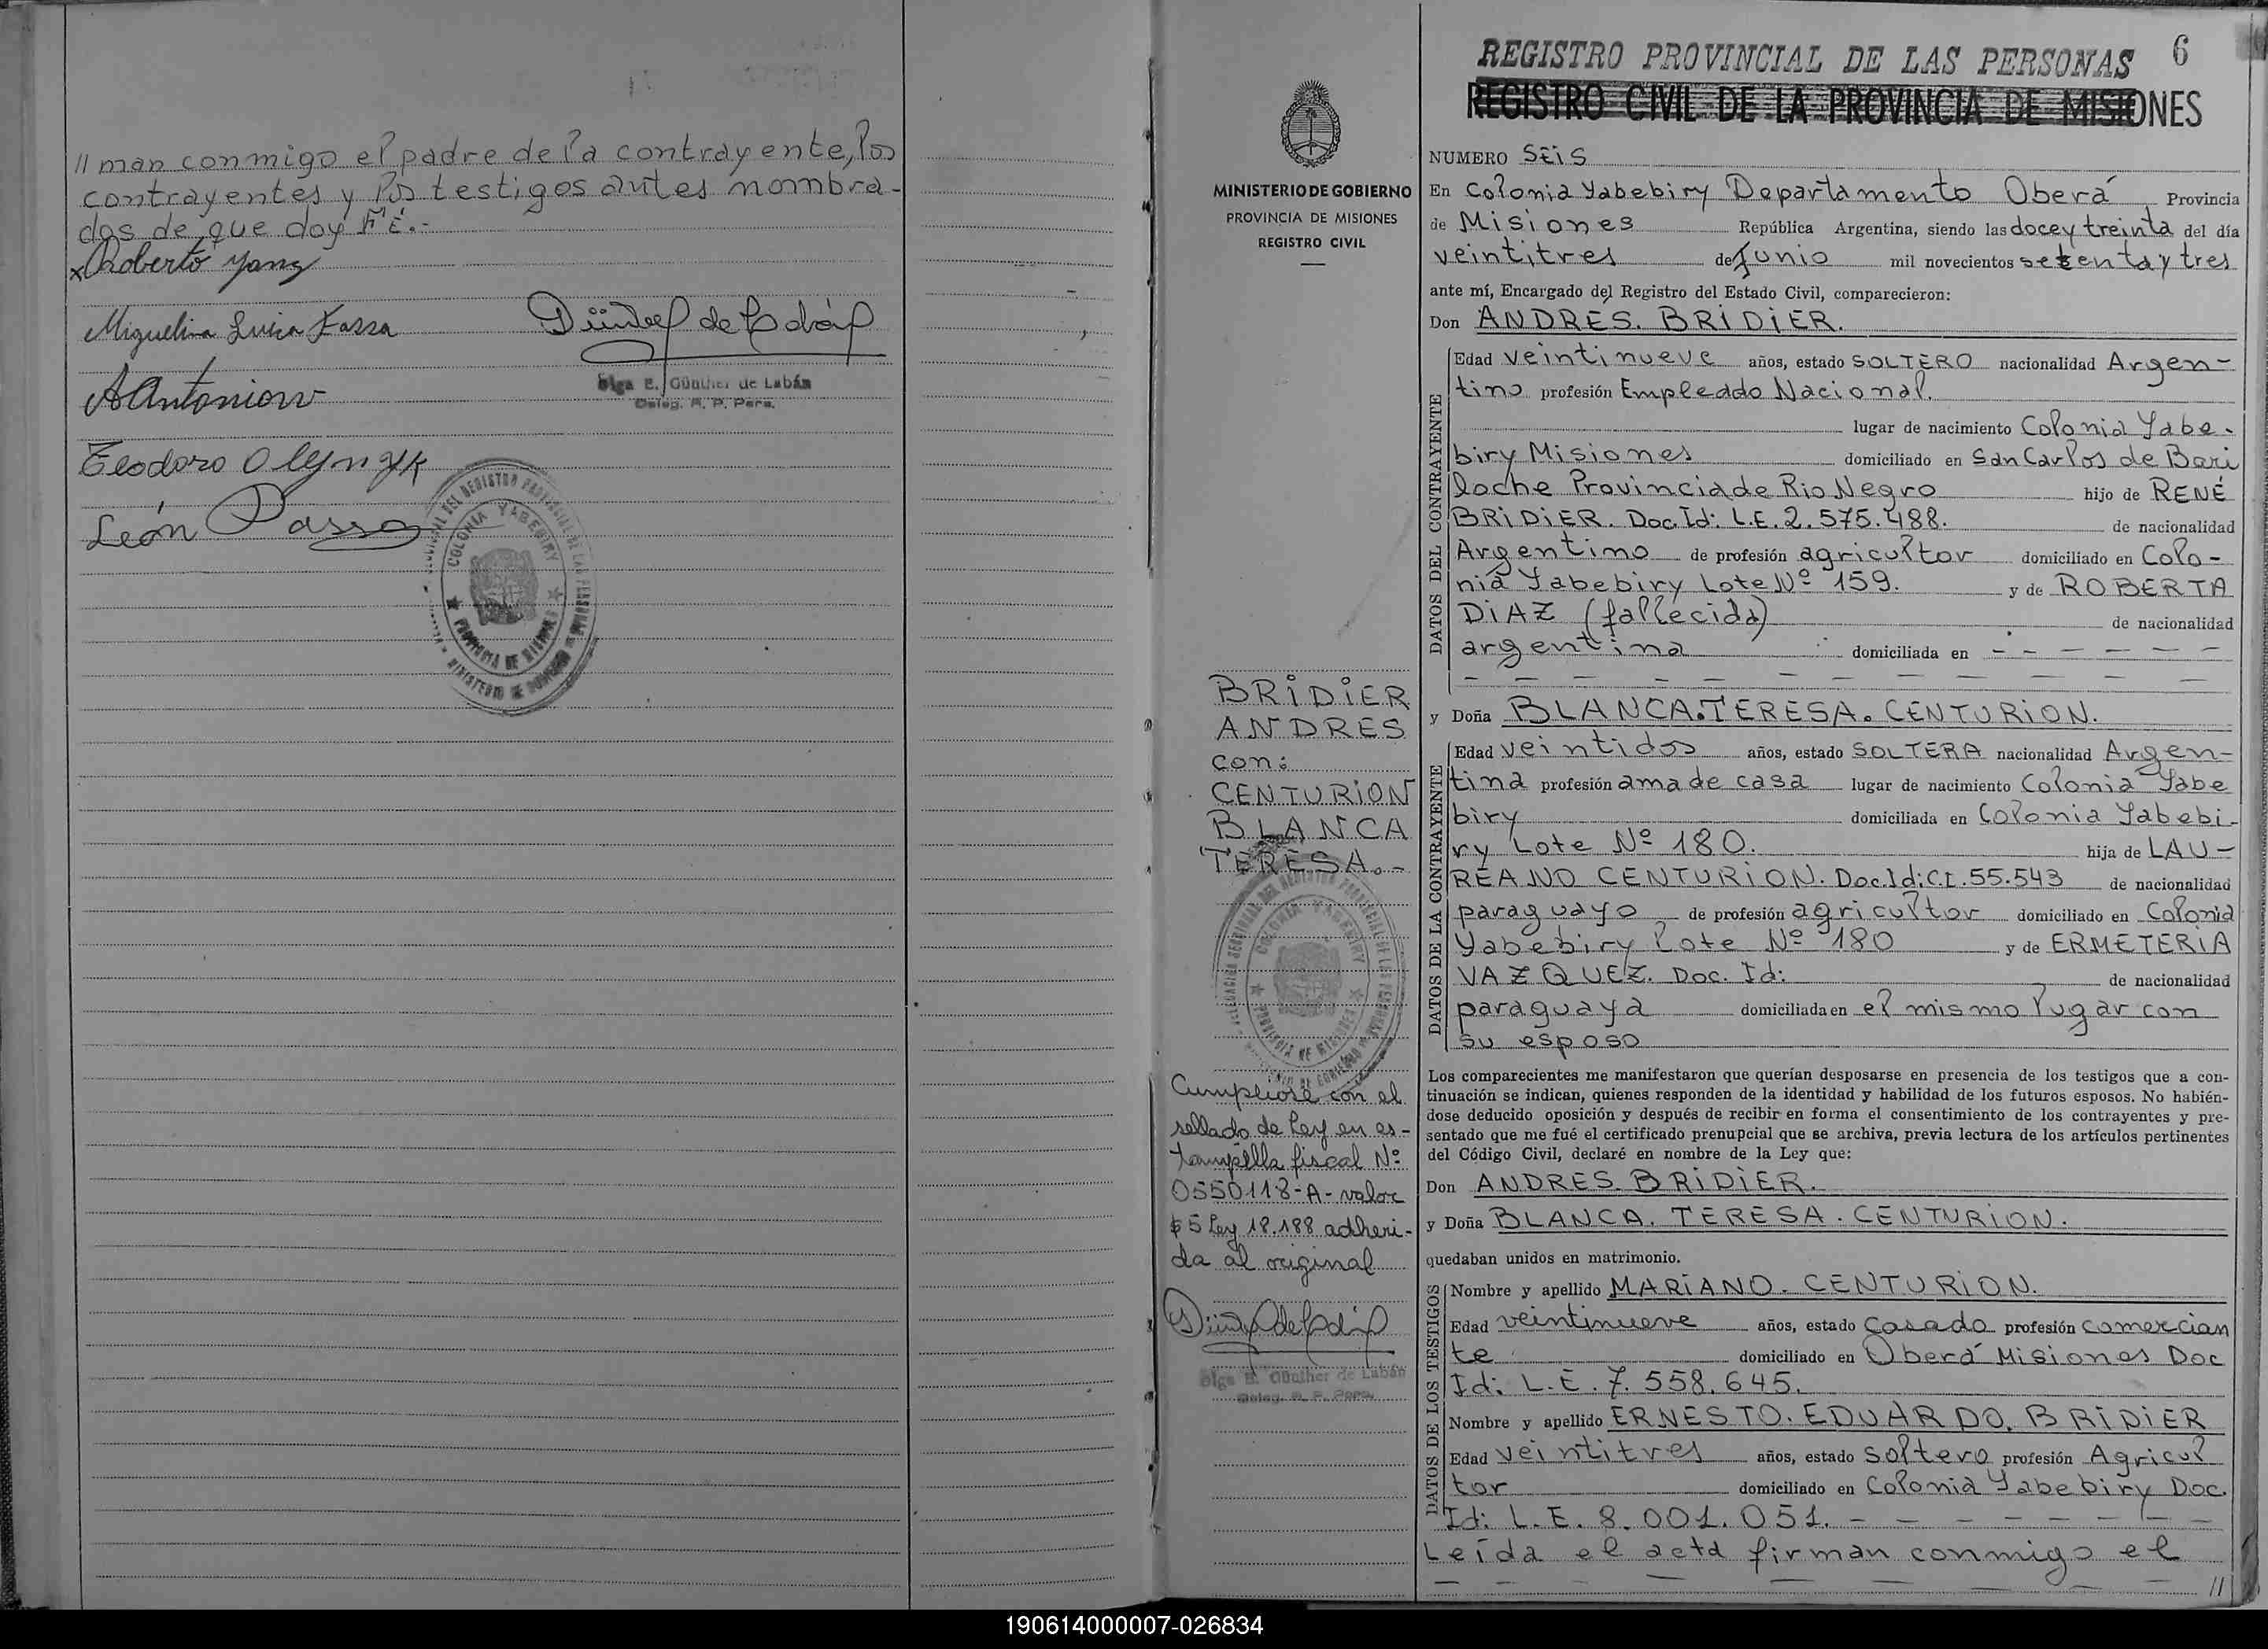 // man conmigo el padre de la contrayente, los
contrayentes y los testigos antes nombra-
dos de que doy FÉ.-
x Roberto Yang
Miguelina Luisa Fassa
AAntoniow
Teodoro Olynyk
León Passo
Olga E. Günther de Labán
Deleg. R. P. Pers.
COLONIA YABEBIRY
PROVINCIA DE MISIONES
MINISTERIO DE GOBIERNO
PROVINCIA DE MISIONES
REGISTRO CIVIL
BRIDIER
ANDRES
con:
CENTURION
BLANCA
TERESA.-
COLONIA YABEBIRY
PROVINCIA DE MISIONES
Cumpliose con el
sellado de Ley en es-
tampilla fiscal Nº
0550118-A- valor
$5 Ley 18.188 adheri-
da al original
Olga E. Günther de Labán
Deleg. R. P. Pers.
6
REGISTRO PROVINCIAL DE LAS PERSONAS
REGISTRO CIVIL DE LA PROVINCIA DE MISIONES
NUMERO SEIS
En Colonia Yabebiry Departamento Oberá Provincia
de Misiones República Argentina, siendo las doce y treinta del día
veintitres de Junio mil novecientos setenta y tres
ante mí, Encargado del Registro del Estado Civil, comparecieron:
Don ANDRES. BRIDIER.
DATOS DEL CONTRAYENTE
Edad veintinueve años, estado SOLTERO nacionalidad Argen-
tino profesión Empleado Nacional.
lugar de nacimiento Colonia Yabe-
biry Misiones domiciliado en San Carlos de Bari
loche Provincia de Rio Negro hijo de RENÉ
BRIDIER. Doc. Id: L.E. 2.575.488. de nacionalidad
Argentino de profesión agricultor domiciliado en Colo-
nia Yabebiry Lote Nº 159. y de ROBERTA
DIAZ (fallecida) de nacionalidad
argentina domiciliada en - - - - - -
- - - - - - - - - -
y Doña BLANCA.TERESA. CENTURION.
DATOS DE LA CONTRAYENTE
Edad veintidos años, estado SOLTERA nacionalidad Argen-
tina profesión ama de casa lugar de nacimiento Colonia Yabe
biry domiciliada en Colonia Yabebi-
ry Lote Nº 180. hija de LAU-
REANO CENTURION. Doc.Id:C.I.55.543 de nacionalidad
paraguayo de profesión agricultor domiciliado en Colonia
Yabebiry Lote Nº 180 y de ERMETERIA
VAZQUEZ. Doc. Id: de nacionalidad
paraguaya domiciliada en el mismo lugar con
su esposo
Los comparecientes me manifestaron que querían desposarse en presencia de los testigos que a con-
tinuación se indican, quienes responden de la identidad y habilidad de los futuros esposos. No habién-
dose deducido oposición y después de recibir en forma el consentimiento de los contrayentes y pre-
sentado que me fué el certificado prenupcial que se archiva, previa lectura de los artículos pertinentes
del Código Civil, declaré en nombre de la Ley que:
Don ANDRES. BRIDIER.
y Doña BLANCA. TERESA. CENTURION.
quedaban unidos en matrimonio.
DATOS DE LOS TESTIGOS
Nombre y apellido MARIANO. CENTURION.
Edad veintinueve años, estado Casado profesión comercian
te domiciliado en Oberá Misiones Doc
Id: L.E. 7.558.645.
Nombre y apellido ERNESTO. EDUARDO. BRIDIER
Edad veintitres años, estado soltero profesión Agricul
tor domiciliado en Colonia Yabebiry Doc.
Id: L.E. 8.001.051. - - - - - - - -
Leída el acta firman conmigo el
- - - - - - - - - //
190614000007-026834